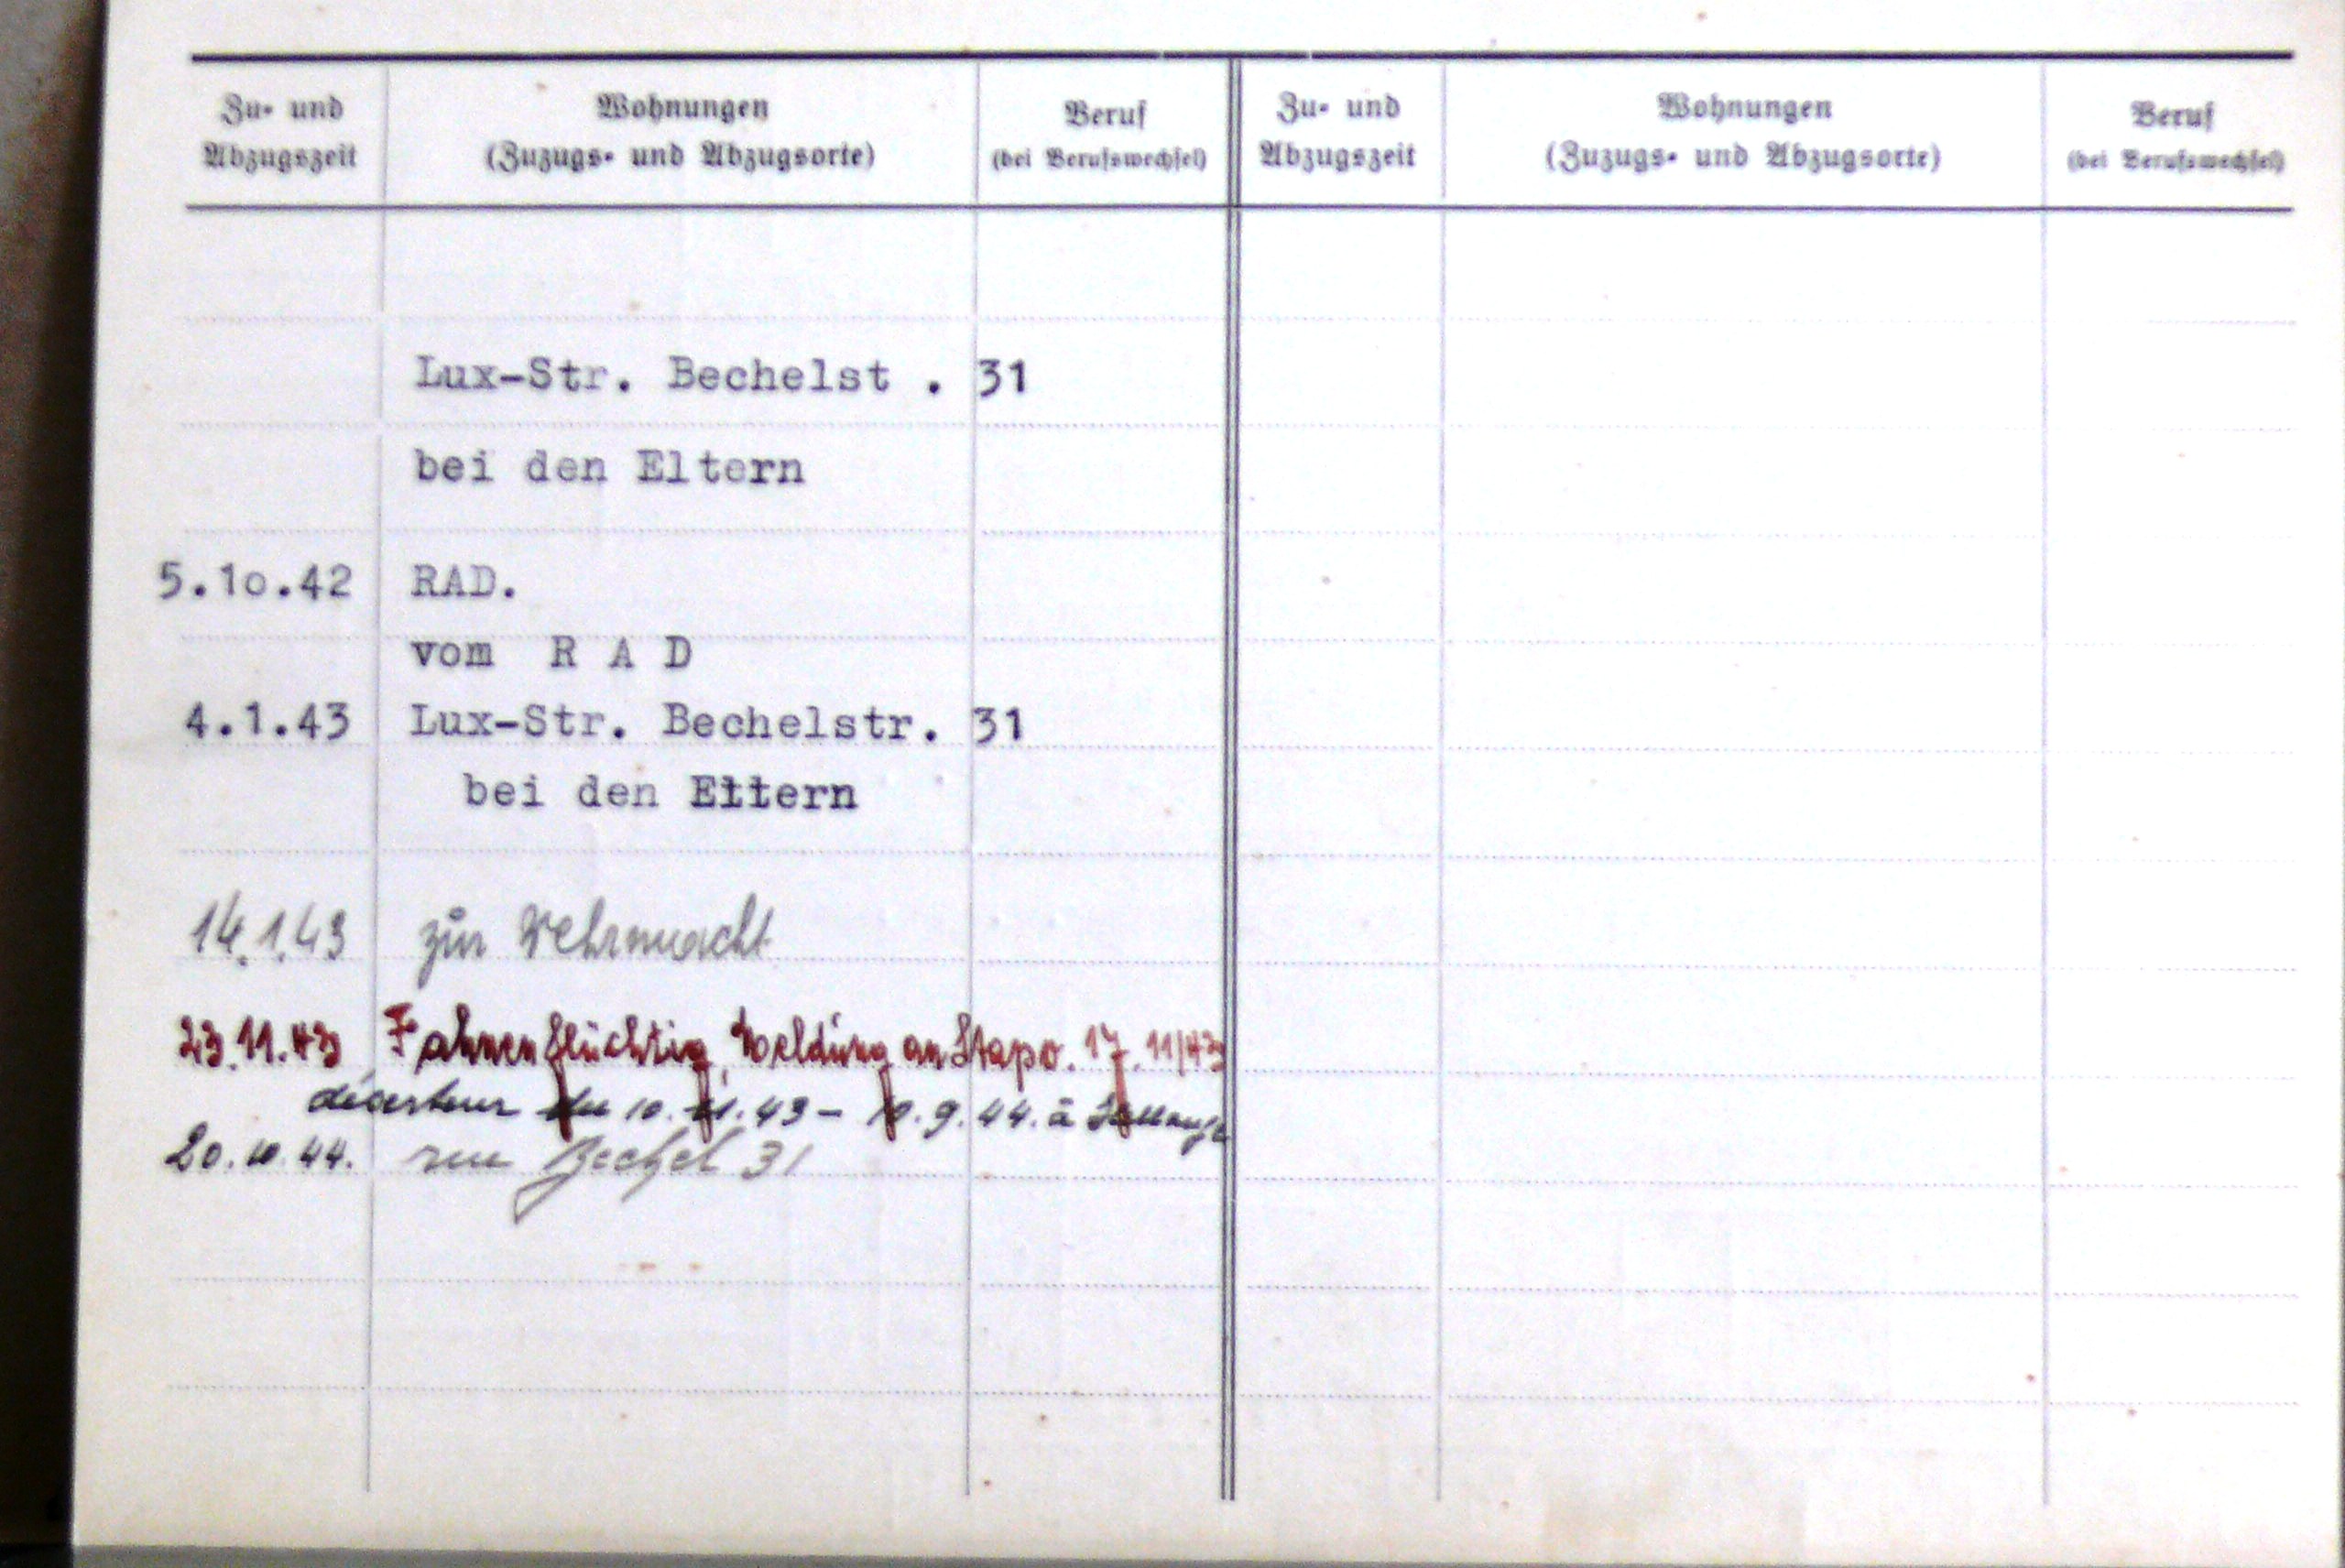 Zu- und Abzugszeit
Wohnungen
(Zuzugs- und Abzugsorte)
Beruf
(bei Berufswechsel)
Zu- und Abzugszeit
Wohnungen
(Zuzugs- und Abzugsorte)
Beruf
(bei Berufswechsel)
Lux-Str. Bechelst . 31
bei den Eltern
5.10.42 RAD.
vom R A D
4.1.43 Lux-Str. Bechelstr. 31
bei den Eltern
14.1.43 zur Wehrmacht
23.11.43 Fahnenflüchtig, Meldung an Stapo. 17.11/43
déserteur du 10.11.43 - 10.9.44. à
20.10.44. rue Bechel 31